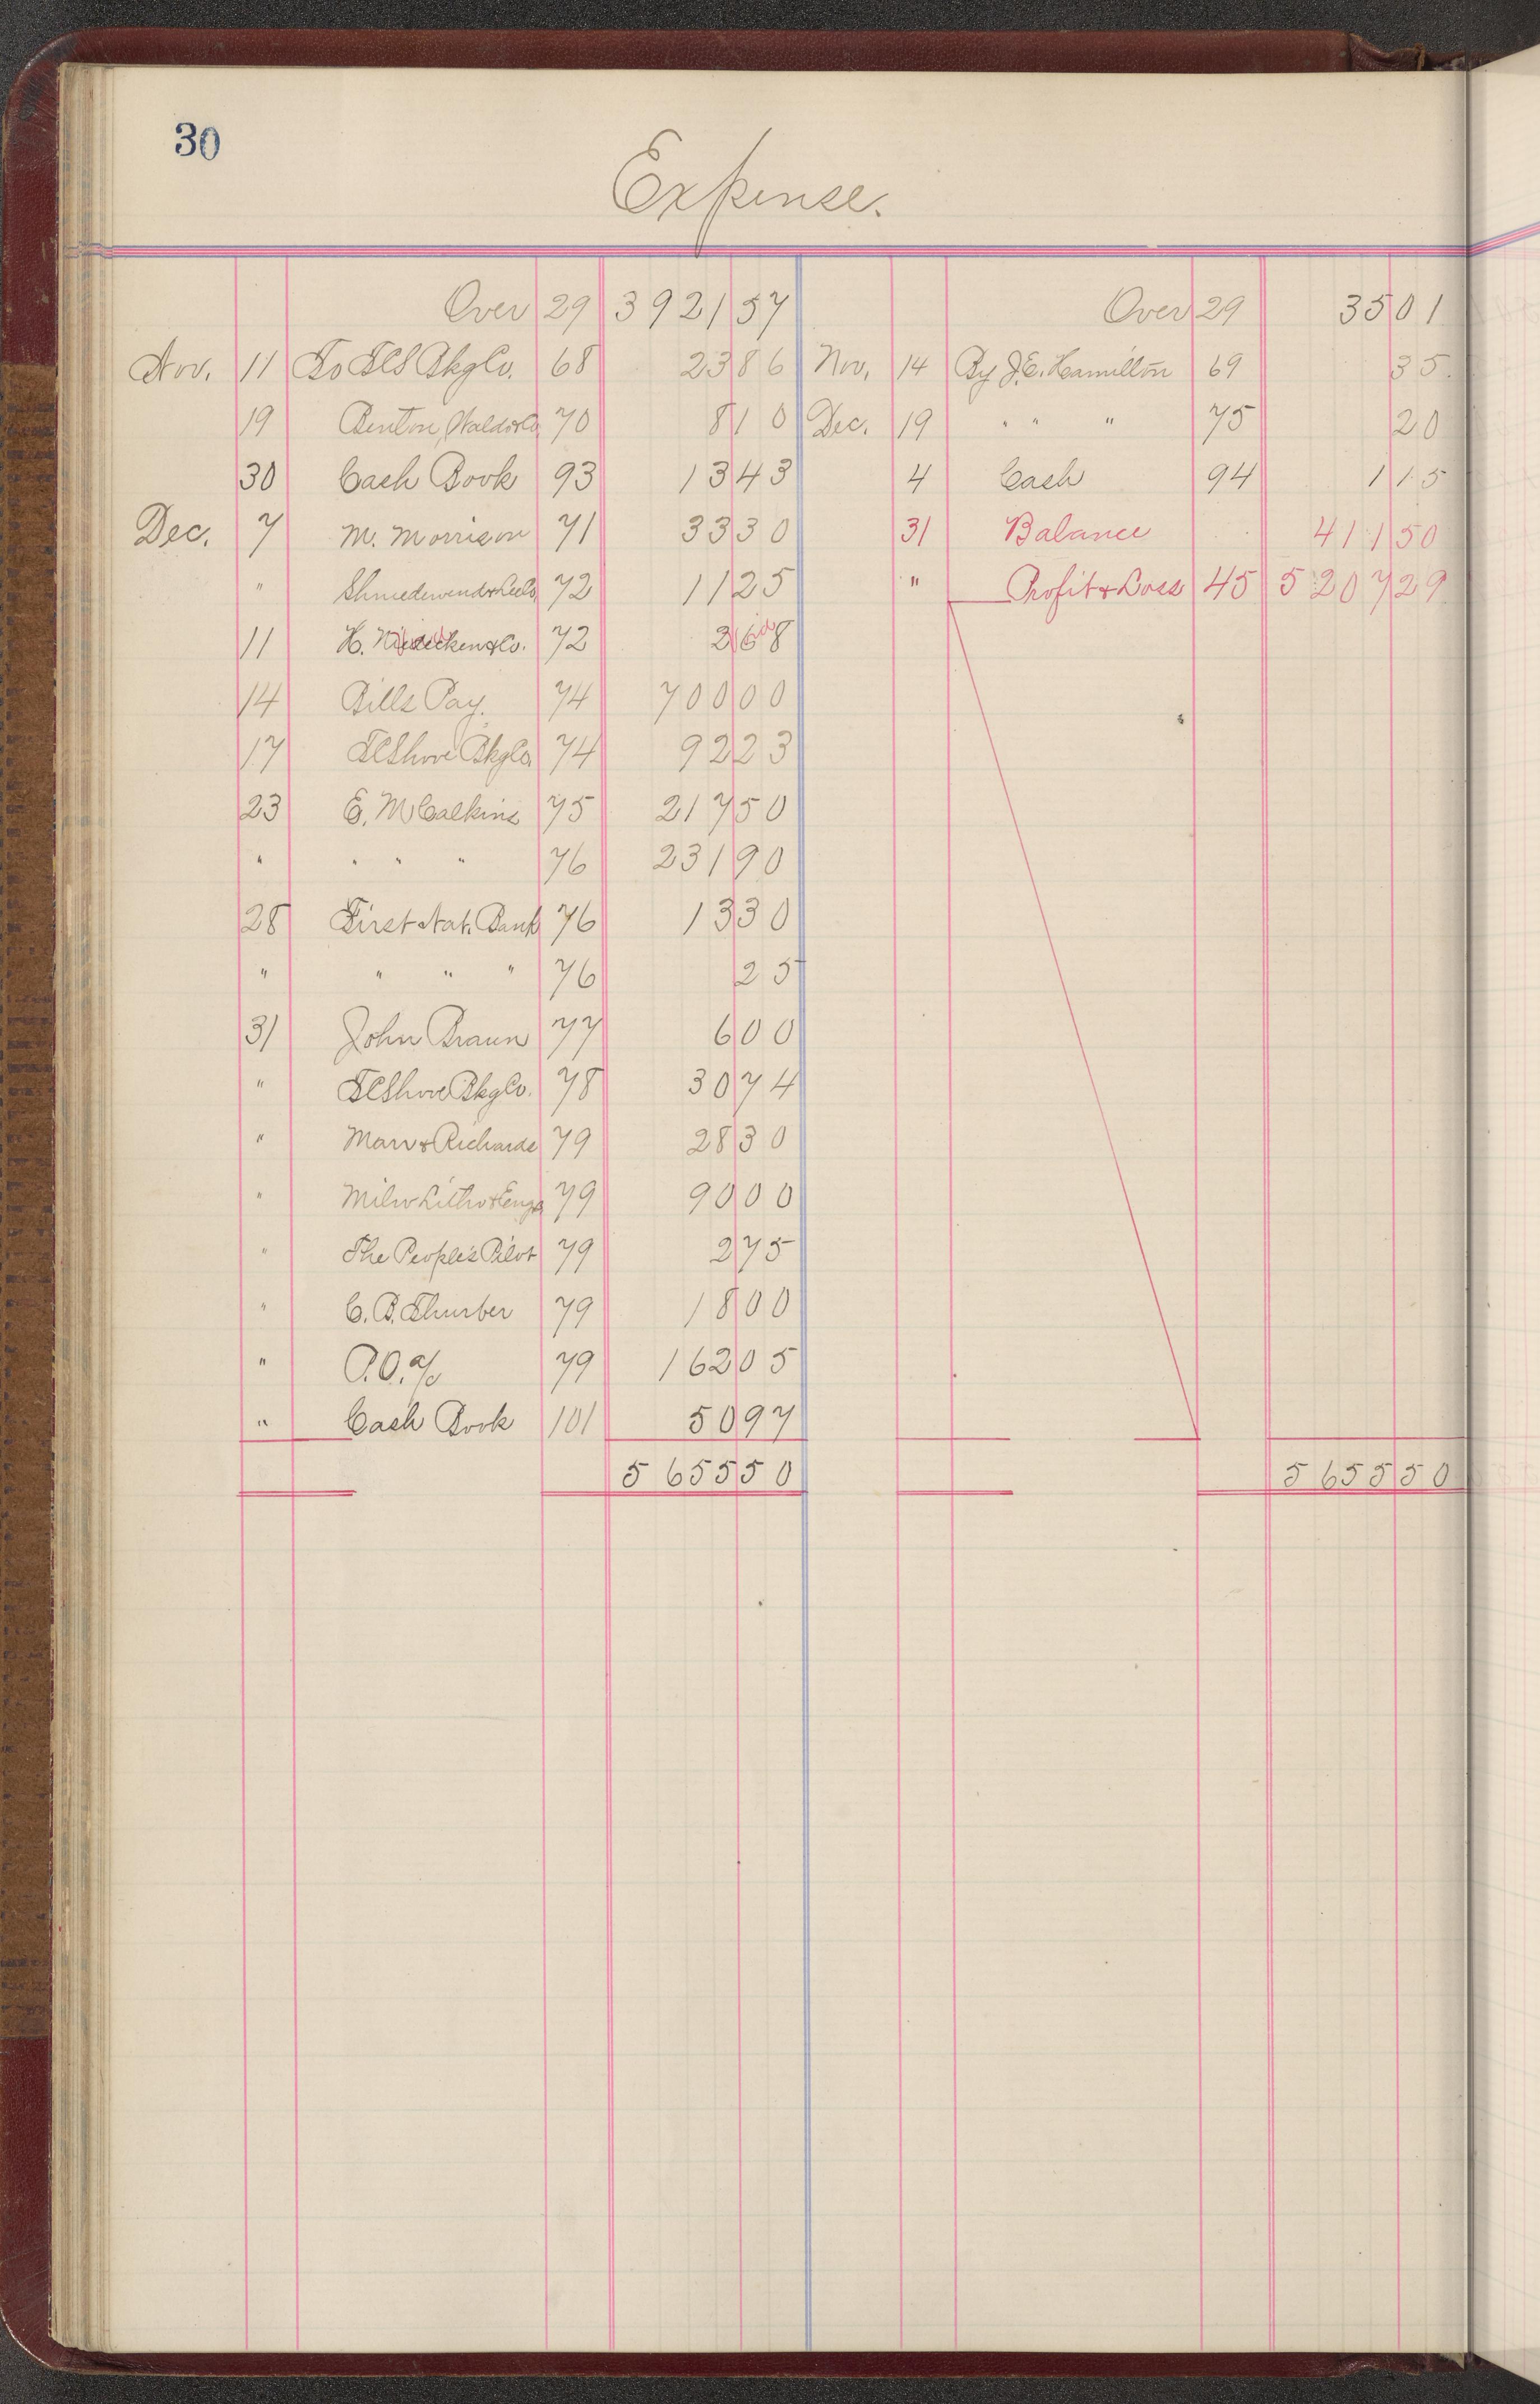 30
Expense.
Over 29 3921 57
Nov. 11 To TCS Bkg Co. 68 23 86
19 Benton, Waldo & Co. 70 8 10
30 Cash Book 93 13 43
Dec. 7 M. Morrison 71 33 30
" & Lee Co. 72 11 25
11 H. & Co. 72 2 68
14 Bills Pay. 74 700 00
17 TC Shove Bkg Co. 74 92 23
23 E. M Calkins 75 217 50
" " " " 76 231 90
28 First Nat. Bank 76 13 30
" " " " 76 25
31 John Braun 77 6 00
" TC Shove Bkg Co. 78 30 74
" Marr & Richards 79 28 30
" Milw Litho & Engr 79 90 00
" The People's Pilot 79 2 75
" C. B. Thurber 79 18 00
" P.O. a/c 79 162 05
" Cash Book 101 50 97
5655 50
Over 29 35 01
Nov. 14 By J. E. Hamilton 69 35
Dec. 19 " " " 75 20
4 Cash 94 1 15
31 Balance 411 50
" Profit & Loss 45 5207 29
5655 50